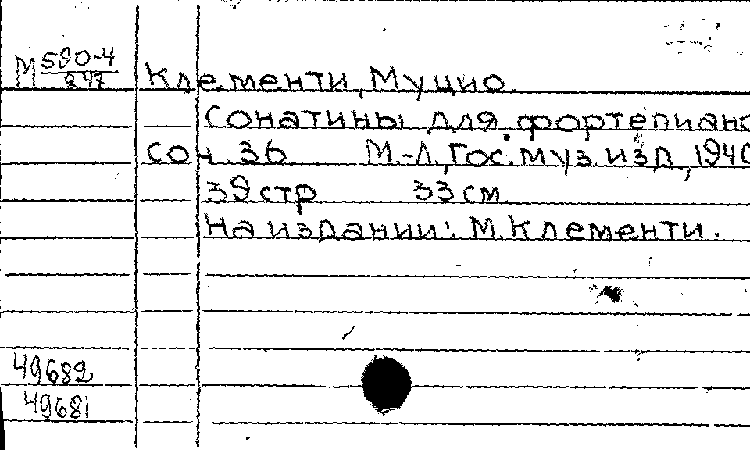 М 590-4/247 Клементи, Муцио
Сонатины для фортепиано
соч. 36 М.-Л., Гос. муз. изд., 1940
39 стр 33 см
На издании: М. Клементи.
49682
49681